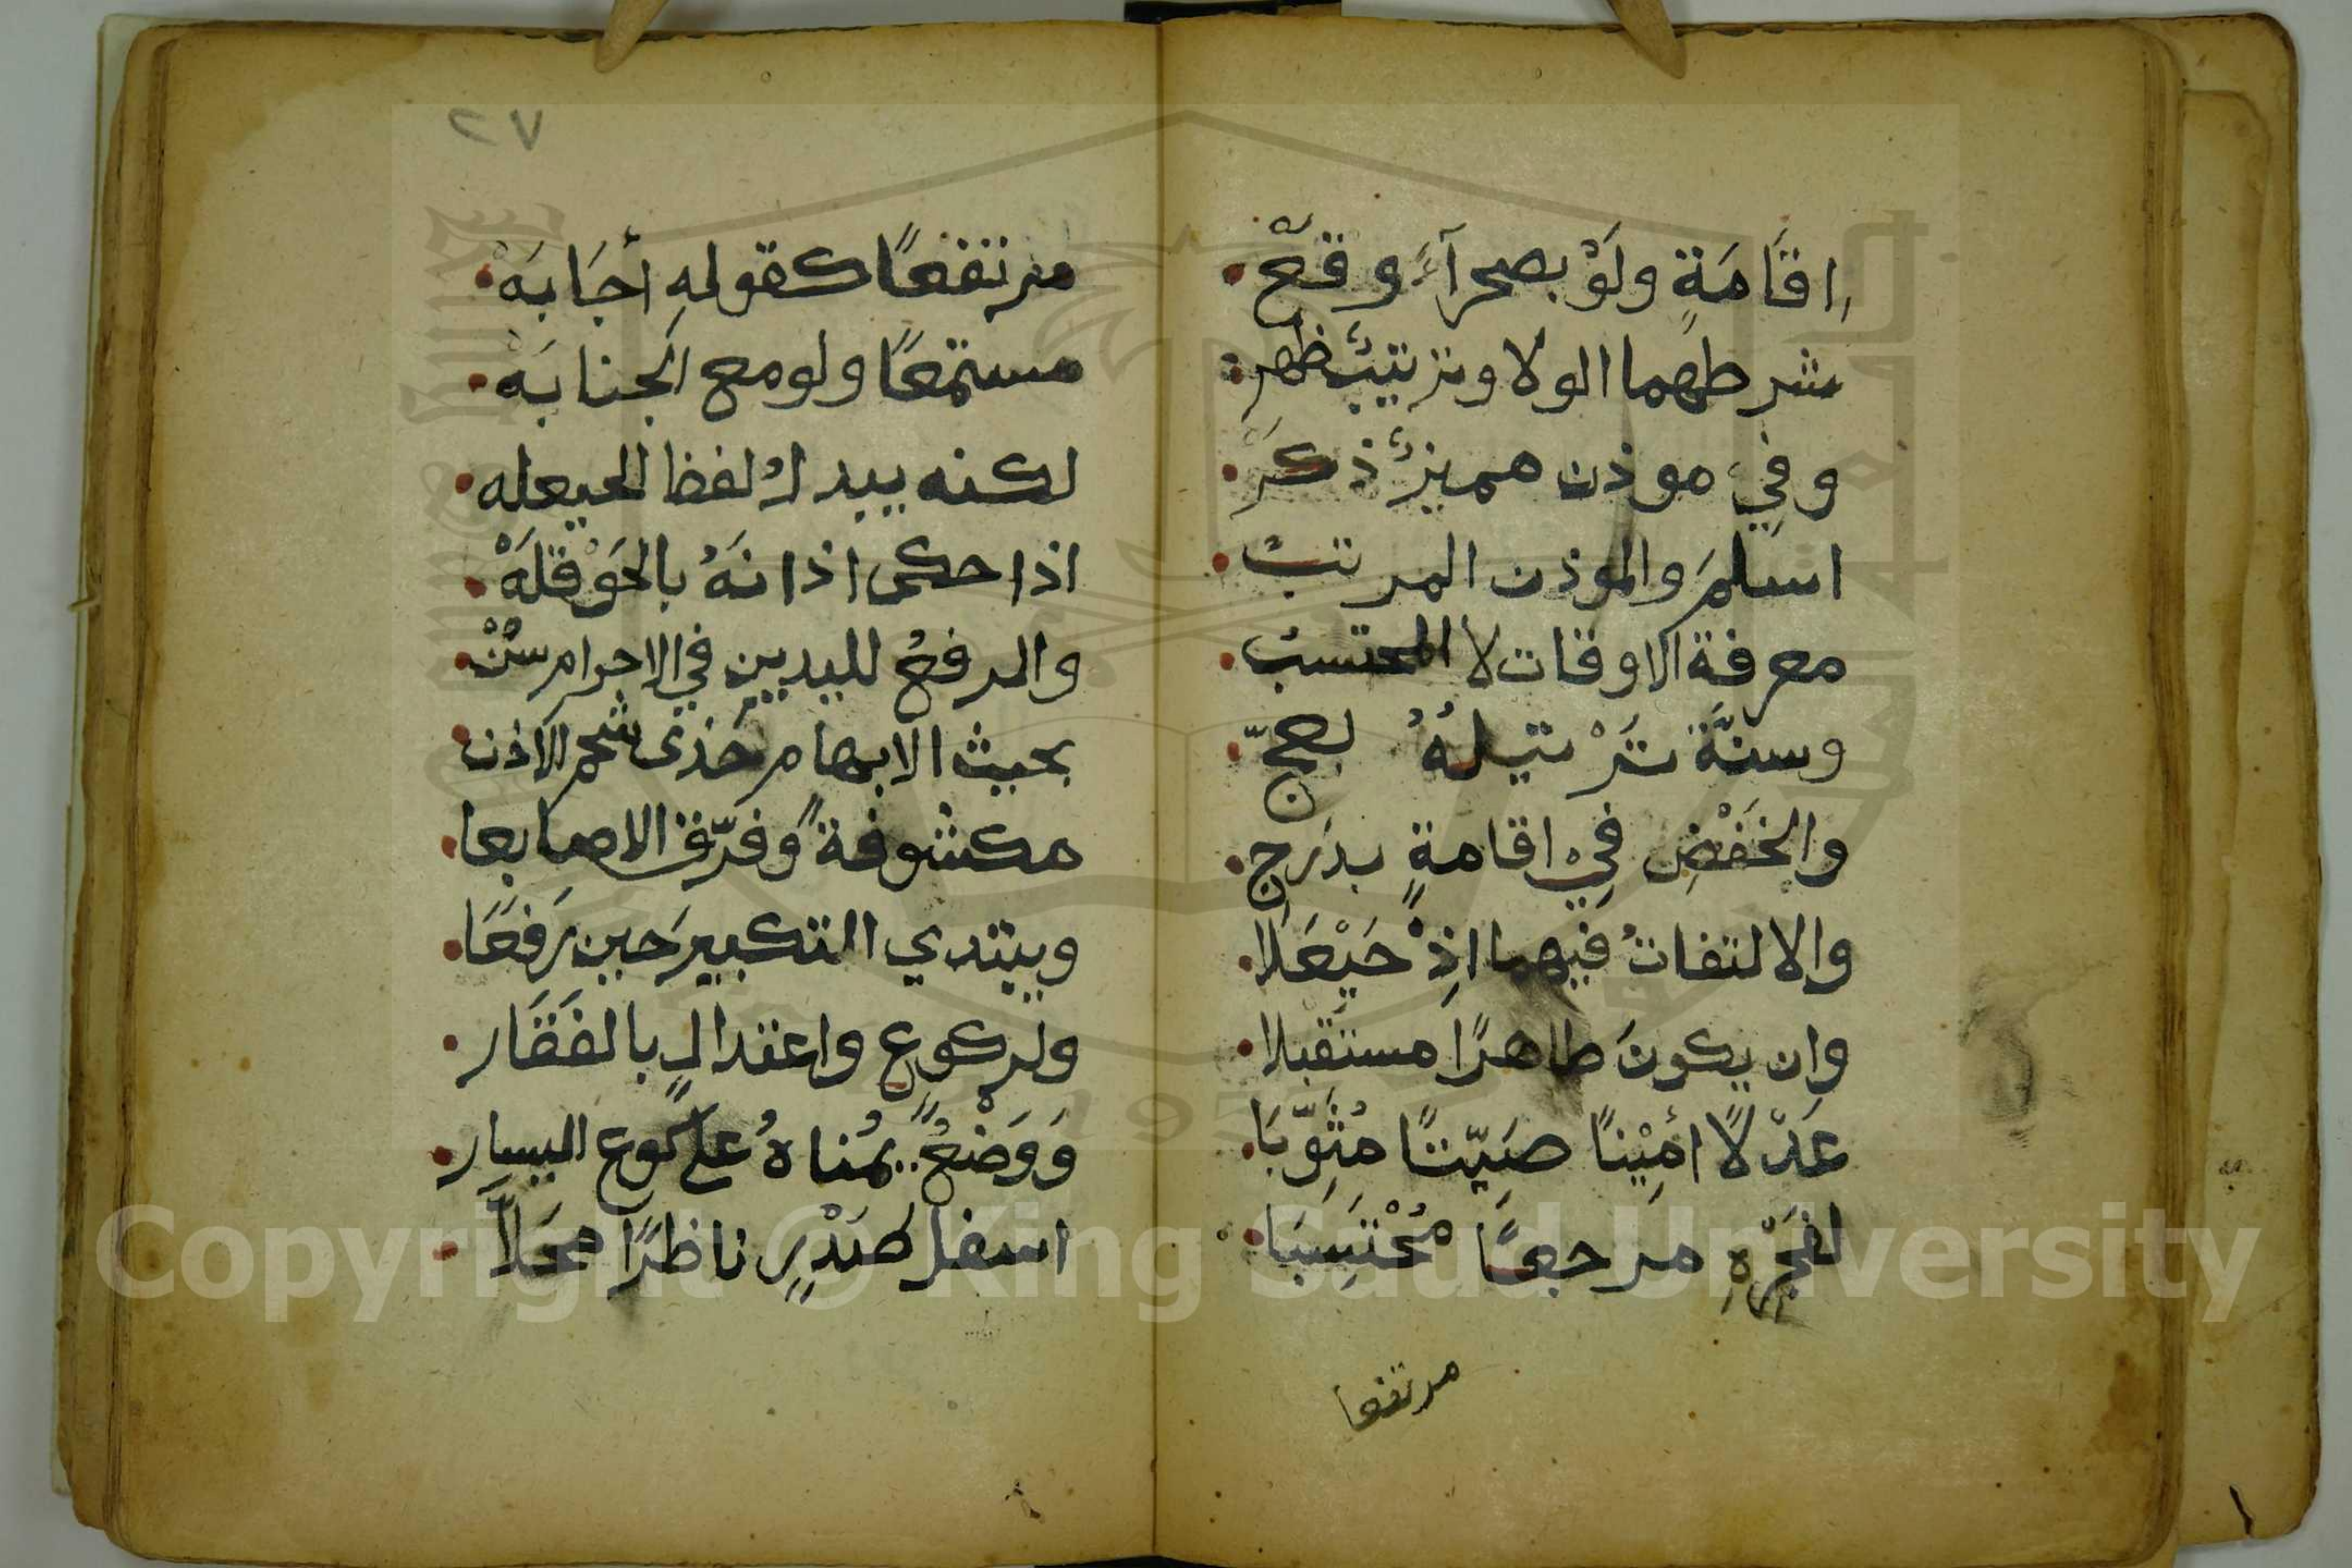 اقَامَةٍ ولَوْ بصحرآءَ وقعْ
شرطهما الولا وترتيبٌ ظهر
وفي موذن مميزٌ ذكَرْ
اسلمَ والموذن المرتبُ
معرفة الاوقات لا المحتسبُ
وسنَّة تَرْتيلهُ بعجّ
والخَفْضِ في اقامةٍ بدَرجِ
والالتفاتُ فيهما اذْ حَيْعَلَا
وان يكونَ طاهرًا مستقبلا
عَدْلًا امِيْنًا صَيّتًا مُثَوِّبَا
لفَجْرِهِ مرجعًا مُحْتَسِبَا
مرتفعا
٢٧
مرتفعًا كقولهِ أجَابَهْ
مستمعًا ولو مع الجنابَهْ
لكنه يبدلُ لفظ الحيعله
اذا حكى اذانَهُ بالحَوْقلَهْ
والرفعُ لليديين في الاحرام سُنْ
بحيث الابهام حَذى شحم الاذن
مكشوفةً وفرّق الاصابعا
ويبتدي التكبيرَ حين رَفَعَا
ولركوعٍ واعتدالٍ بالفَقَار
وَوَضْعُ يُمناهُ على كوع اليسار
اسفل صَدْرٍ ناظرًا محَلَّا
Copyright © King Saud University